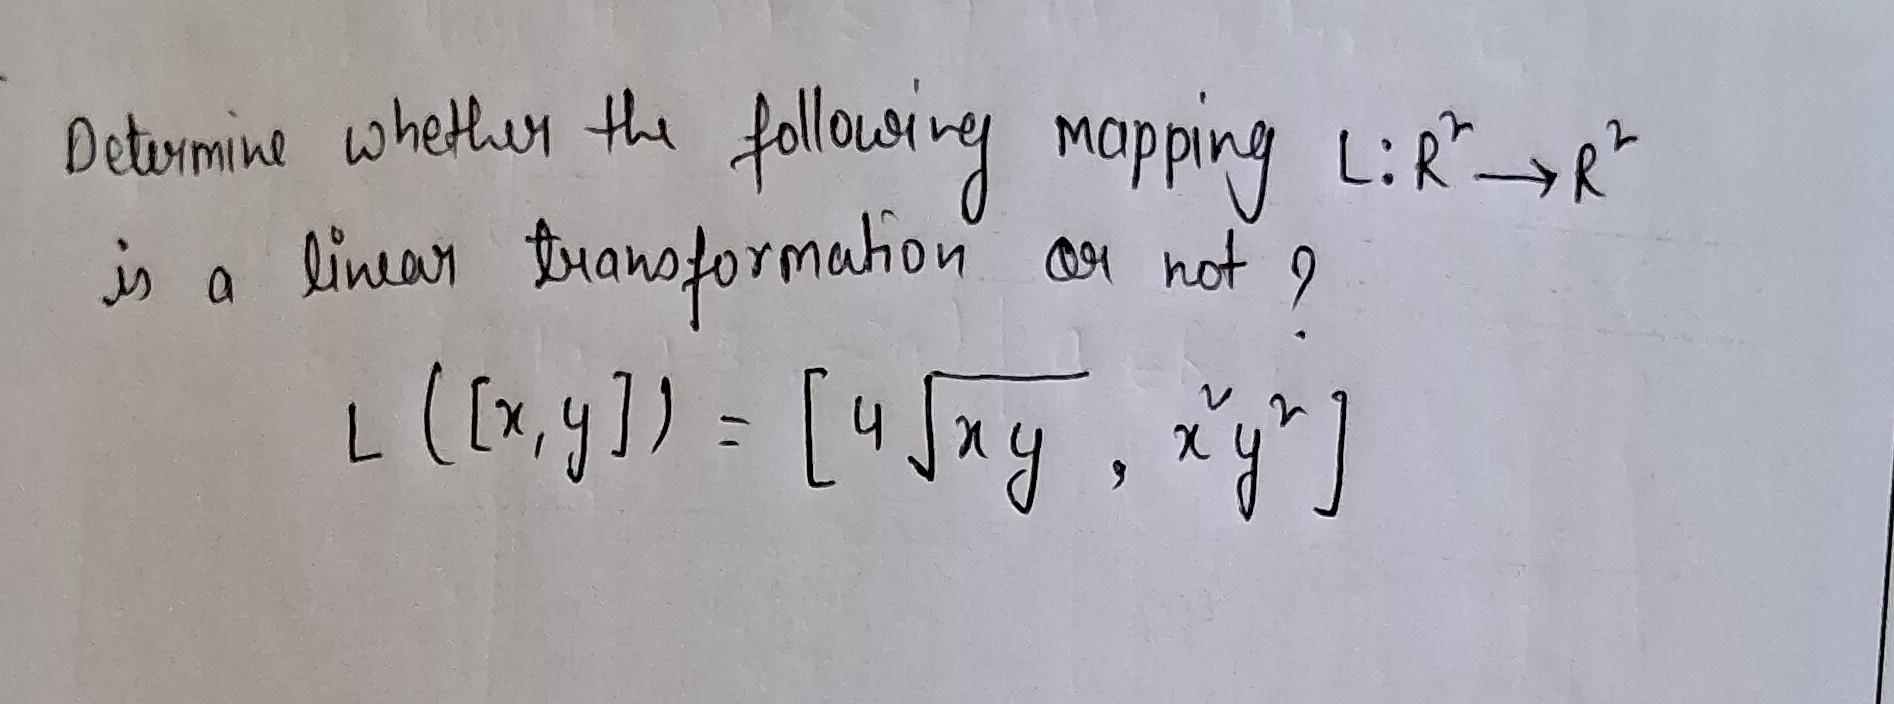 Determine whether the following mapping L:R²→R²
is a linear transformation or not ?
L([x,y]) = [4√xy , x²y²]